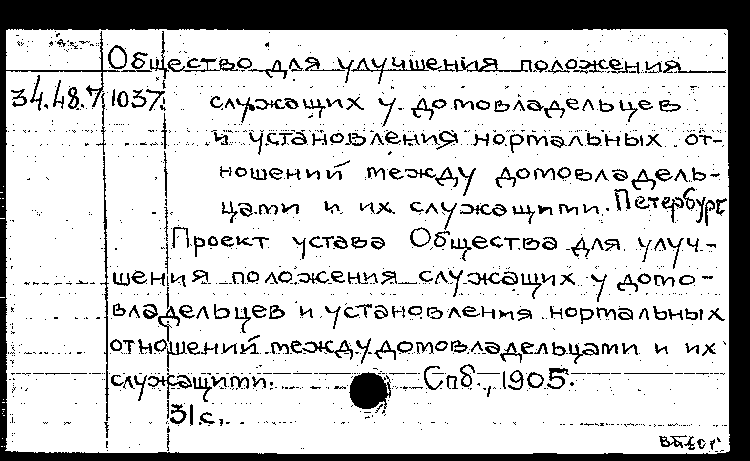 Общество для улучшения положения
34.48.7.1037. служащих у домовладельцев
и установления нормальных от-
ношений между домовладель-
цами и их служащими. Петербург
Проект устава Общества для улуч-
шения положения служащих у домо-
владельцев и установления нормальных
отношений между домовладельцами и их
служащими. Спб., 1905.
31 с.